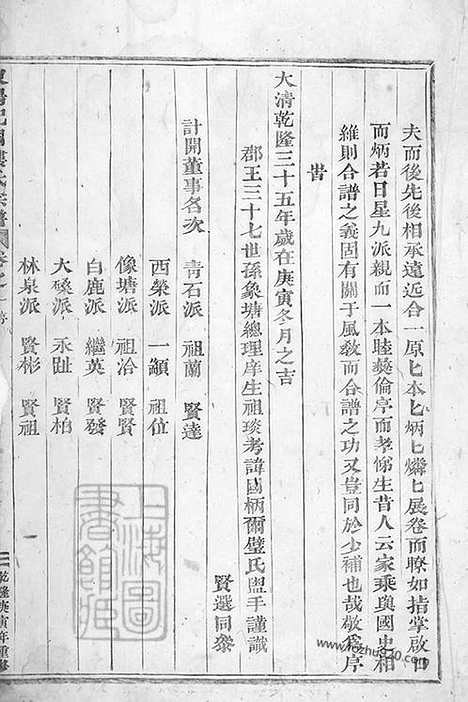 夫而後先後相承遠近合一原匕本匕炳匕燐匕展卷而瞭如指掌啟
而炳若日星九派親而一本睦彝倫序而孝悌生昔人云家乘與國史相
維則合譜之義固有關于風教而合譜之功又豈同於少補也哉敬為序
旹
大清乾隆三十五年歲在庚寅冬月之吉
郡王三十七世孫象塘總理庠生祖琰考諱國柄爾璧氏盥手謹識
賢選同叅
計開董事名次
青石派 祖蘭 賢達
西榮派 一顓 祖位
像塘派 祖洽 賢賢
白鹿派 繼英 賢發
大磉派 永趾 賢柏
林泉派 賢彬 賢祖
氏宗譜
卷之一
乾隆庚寅年重修
上海圖書館藏
www.fozhu920.com